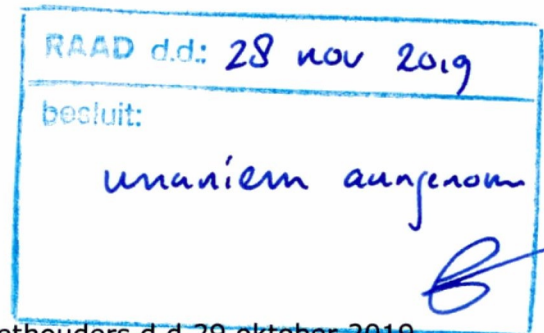 RAAD d.d.: 28 nov 2019
besluit:
unaniem aangenom
ethouders d.d 29 oktober 2019